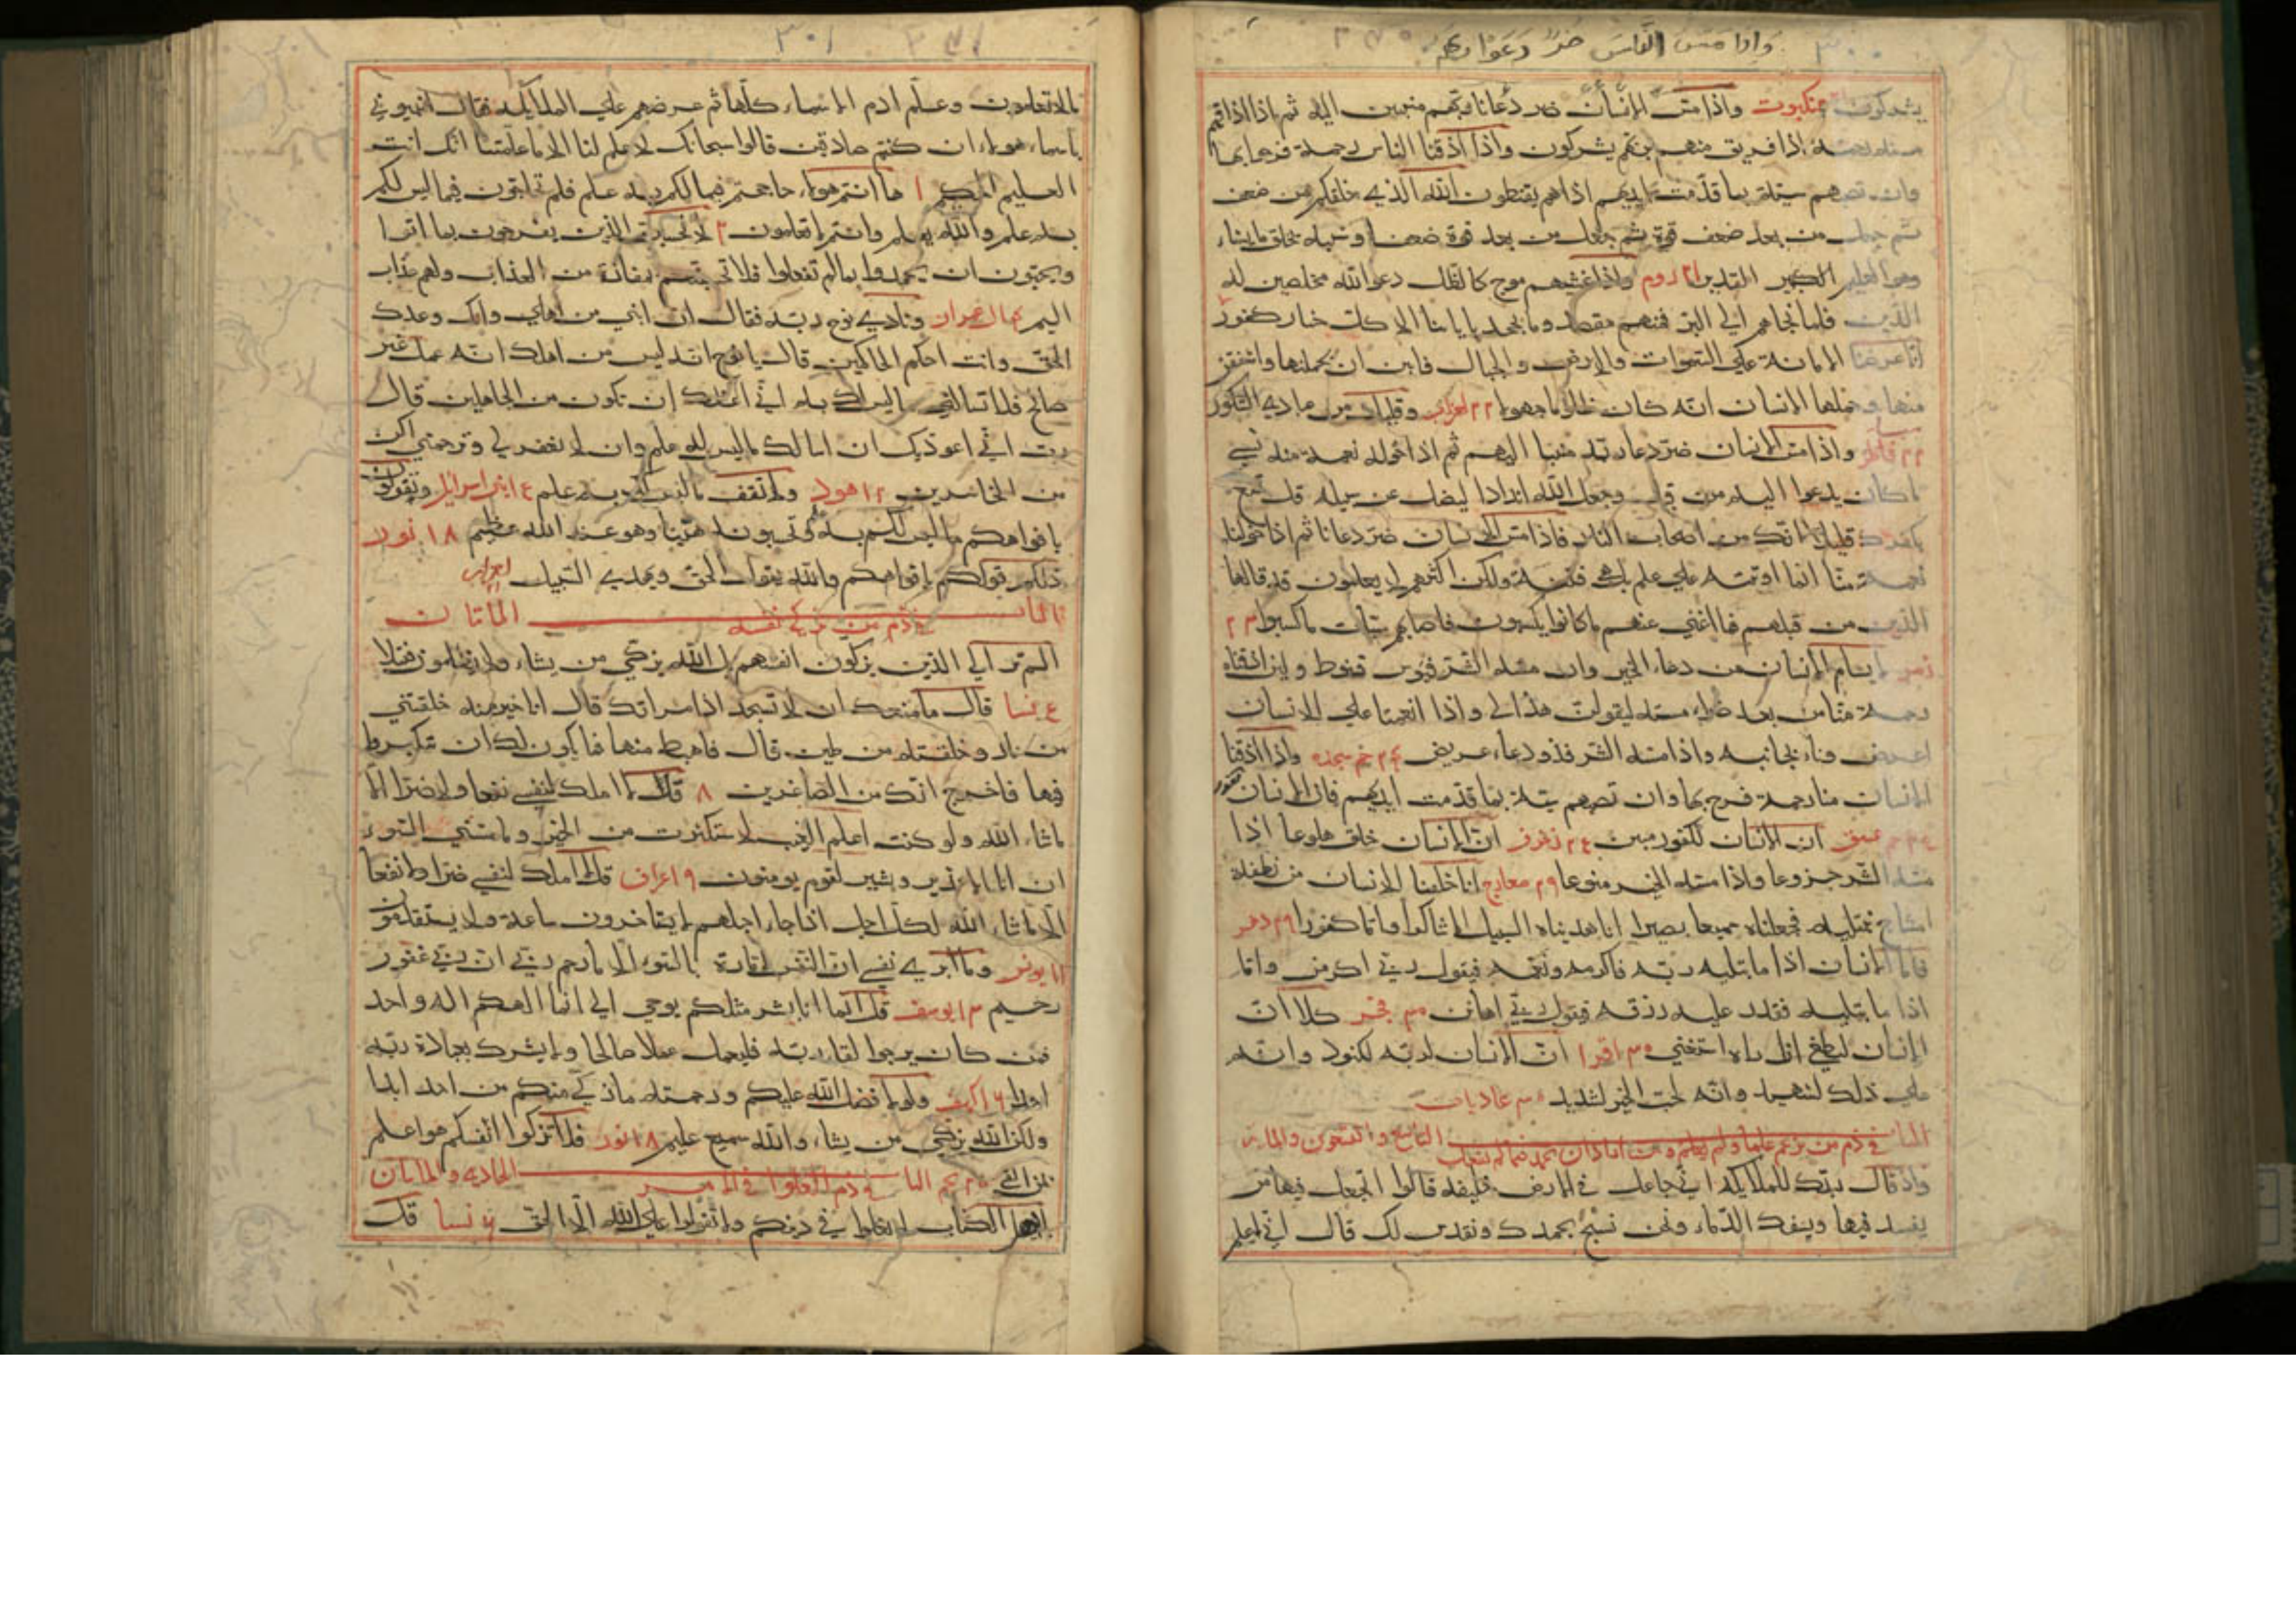 واذا مس الناس ضر دعوا ربهم
٣٠٠
يشركون عنكبوت واذا مسّ الانسان ضر دعانا ربهم منيبين اليه ثم اذا اذاقهم
منه رحمة اذا فريق منهم بربهم يشركون واذا اذقنا الناس رحمة فرحوا بها
وان تصبهم سيئة بما قدّمت ايديهم اذا هم يقنطون الله الذي خلقكم من ضعف
ثم جعل من بعد ضعف قوة ثم جعل من بعد قوة ضعفا وشيبة يخلق ما يشاء
وهو العليم القدير ٢١ روم واذا غشيهم موج كالظلل دعوا الله مخلصين له
الدين فلما نجاهم الي البر فمنهم مقتصد وما يجحد باياتنا الا كل ختار كفور
انا عرضنا الامانة علي السموات والارض والجبال فابين ان يحملنها واشفقن
منها وحملها الانسان انه كان ظلوما جهولا ٢٢ احزاب وقليل من عبادي الشكور
٢٢ فاطر واذا مس الانسان ضر دعا ربه منيبا اليه ثم اذا خوله نعمة منه نسي
ما كان يدعوا اليه من قبل وجعل الله اندادا ليضل عن سبيله قل تمتع
بكفرك قليلا انك من اصحاب النار فاذا مس الانسان ضر دعانا ثم اذا خولناه
نعمة منّا قال انما اوتيته علي علم بل هي فتنة ولكن اكثرهم لا يعلمون قد قالها
الذين من قبلهم فما اغني عنهم ما كانوا يكسبون فاصابهم سيئات ما كسبوا ٢٣
زمر لا يسام الانسان من دعاء الخير وان مسه الشر فيؤس قنوط ولئن اذقناه
رحمة منّا من بعد ضراء مسته ليقولن هذا لي واذا انعمنا علي الانسان
اعرض وناء بجانبه واذا مسه الشر فذو دعاء عريض ٢٤ حم سجده واذا اذقنا
الانسان منا رحمة فرح بها وان تصبهم سيئة بما قدمت ايديهم فان الانسان كفور
عسق ان الانسان لكفور مبين ٢٤ زخرف ان الانسان خلق هلوعا اذا
مسه الشر جزوعا واذا مسه الخير منوعا ٢٩ معارج انا خلقنا الانسان من نطفة
امشاج نبتليه فجعلناه سميعا بصيرا انا هديناه السبيل اما شاكرا واما كفورا ٢٩ دهر
فاما الانسان اذا ما ابتليه ربه فاكرمه ونعمه فيقول ربي اكرمن واما
اذا ما ابتليه فقدر عليه رزقه فيقول ربي اهانن ٣٠ فجر كلا ان
الانسان ليطغي ان راه استغني ٣٠ اقرا ان الانسان لربه لكنود وانه
علي ذلك لشهيد وانه لحب الخير لشديد ٣٠ عاديات
في ذم من يزعم علما ولم يعلم التاسع والتسعون والمايه
واذ قال ربك للملايكة اني جاعل في الارض خليفة قالوا اتجعل فيها من
يفسد فيها ويسفك الدّماء ونحن نسبح بحمدك ونقدس لك قال اني اعلم
٣٠١
ما لا تعلمون وعلّم ادم الاسماء كلّها ثم عرضهم علي الملايكة فقال انبئوني
باسماء هولاء ان كنتم صادقين قالوا سبحانك لا علم لنا الا ما علمتنا انك انت
العليم الحكيم ١ ها انتم هولاء حاججتم فيما لكم به علم فلم تحاجون فيما ليس لكم
به علم والله يعلم وانتم لا تعلمون ٣ لا تحسبن الذين يفرحون بما اتوا
ويحبون ان يحمدوا بما لم تفعلوا فلا تحسبنهم بمفازة من العذاب ولهم عذاب
اليم ٤ ال عمران ونادي نوح ربّه فقال ان ابني من اهلي وان وعدك
الحق وانت احكم الحاكمين قال يا نوح انه ليس من اهلك انه عمل غير
صالح فلا تسالني ما ليس لك به اني اعظك ان تكون من الجاهلين قال
رب اني اعوذ بك ان اسالك ما ليس لي به علم وان لا تغفر لي وترحمني اكن
من الخاسرين ١٢ هود ولا تقف ما ليس لك به علم بني اسرائيل وتقولون
بافواهكم ما ليس لكم به وتحسبونه هيّنا وهو عند الله عظيم ١٨ نور
ذلكم قولكم بافواهكم والله يقول الحق ويهدي السّبيل احزاب
الباب في ذم من يزكي نفسه الماتان
الم تر الي الذين يزكون انفسهم بل الله يزكي من يشاء ولا يظلمون فتيلا
نسا قال ما منعك ان لا تسجد اذ امرتك قال انا خير منه خلقتني
من نار وخلقته من طين قال فاهبط منها فما يكون لك ان تتكبر
فيها فاخرج انك من الصاغرين ٨ قل لا املك لنفسي نفعا ولا ضرا الا
ما شاء الله ولو كنت اعلم الغيب لاستكثرت من الخير وما مسّني السوء
ان انا الا نذير وبشير لقوم يومنون ٩ اعراف قل لا املك لنفسي ضرا ولا نفعا
الا ما شاء الله لكل اجل اذا جاء اجلهم لا يستاخرون ساعة ولا يستقدمون
١١ يونس وما ابري نفسي ان النفس لامارة بالسوء الا ما رحم ربي ان ربي غفور
رحيم ١٣ يوسف قل انما انا بشر مثلكم يوحي الي انما الهكم اله واحد
فمن كان يرجوا لقاء ربّه فليعمل عملا صالحا ولا يشرك بعبادة ربّه
احدا ١٦ كهف ولولا فضل الله عليكم ورحمته ما زكي منكم من احد ابدا
ولكن الله يزكي من يشاء والله سميع عليم ١٨ نور فلا تزكوا انفسكم هو اعلم
بمن اتقي نجم الباب في ذم الغلوا في الدين الحاديه والمايتان
يا اهل الكتاب لا تغلوا في دينكم ولا تقولوا علي الله الا الحق ٦ نسا قل